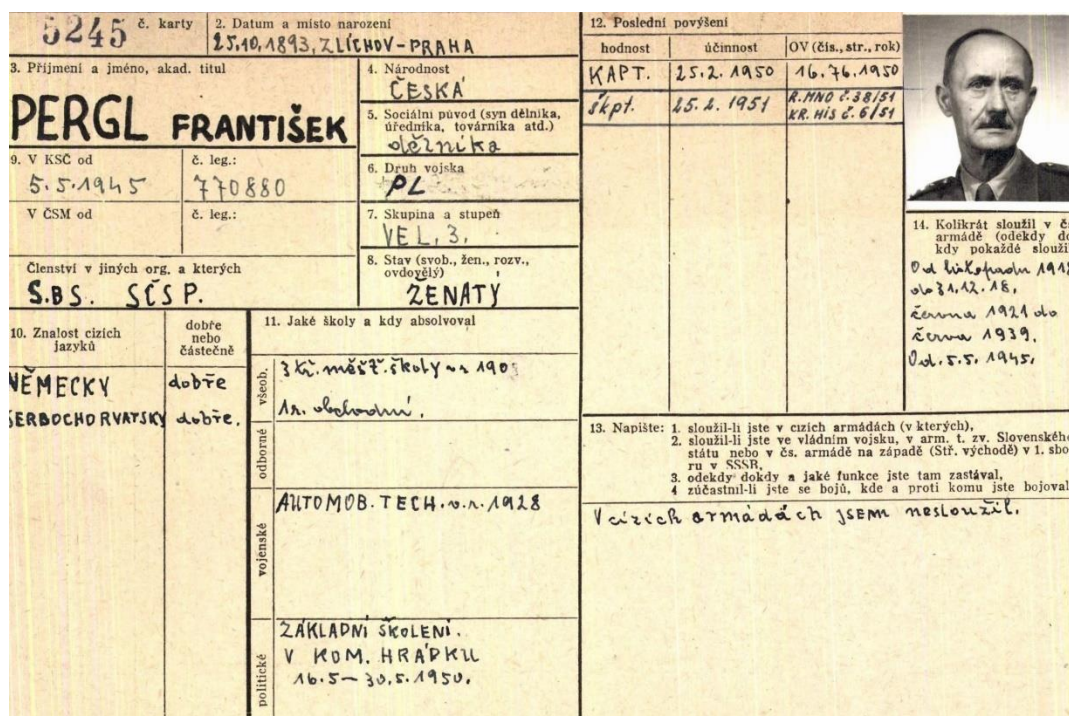 5245 č. karty
2. Datum a místo narození
25.10.1893, ZLÍCHOV-PRAHA
3. Příjmení a jméno, akad. titul
PERGL FRANTIŠEK
4. Národnost
ČESKÁ
5. Sociální původ (syn dělníka,
úředníka, továrníka atd.)
dělníka
9. V KSČ od
5.5.1945
č. leg.:
770880
6. Druh vojska
PL
V ČSM od
č. leg.:
7. Skupina a stupeň
VEL, 3.
Členství v jiných org. a kterých
S.BS. SČSP.
8. Stav (svob., žen., rozv.,
ovdovělý)
ŽENATÝ
10. Znalost cizích
jazyků
dobře
nebo
částečně
NĚMECKY dobře
SERBOCHORVATSKY dobře.
11. Jaké školy a kdy absolvoval
všeob.
3 tř. měšť. školy v r. 190
1 r. obchodní.
odborné
vojenské
AUTOMOB. TECH. v.r. 1928
politické
ZÁKLADNÍ ŠKOLENÍ.
V KOM. HRÁDKU
16.5-30.5.1950.
12. Poslední povýšení
hodnost účinnost OV (čís., str., rok)
KAPT. 25.2.1950 16.76.1950
škpt. 25.2.1951 R.MNO č.38/51
KR. HIS č.6/51
14. Kolikrát sloužil v čs
armádě (odekdy do
kdy pokaždé sloužil
Od listopadu 1918
do 31.12.18.
června 1921 do
června 1939.
Od. 5.5.1945.
13. Napište: 1. sloužil-li jste v cizích armádách (v kterých),
2. sloužil-li jste ve vládním vojsku, v arm. t. zv. Slovenského
státu nebo v čs. armádě na západě (Stř. východě) v 1. sbo
ru v SSSR,
3. odekdy dokdy a jaké funkce jste tam zastával,
4 zúčastnil-li jste se bojů, kde a proti komu jste bojoval
V cizích armádách jsem nesloužil.